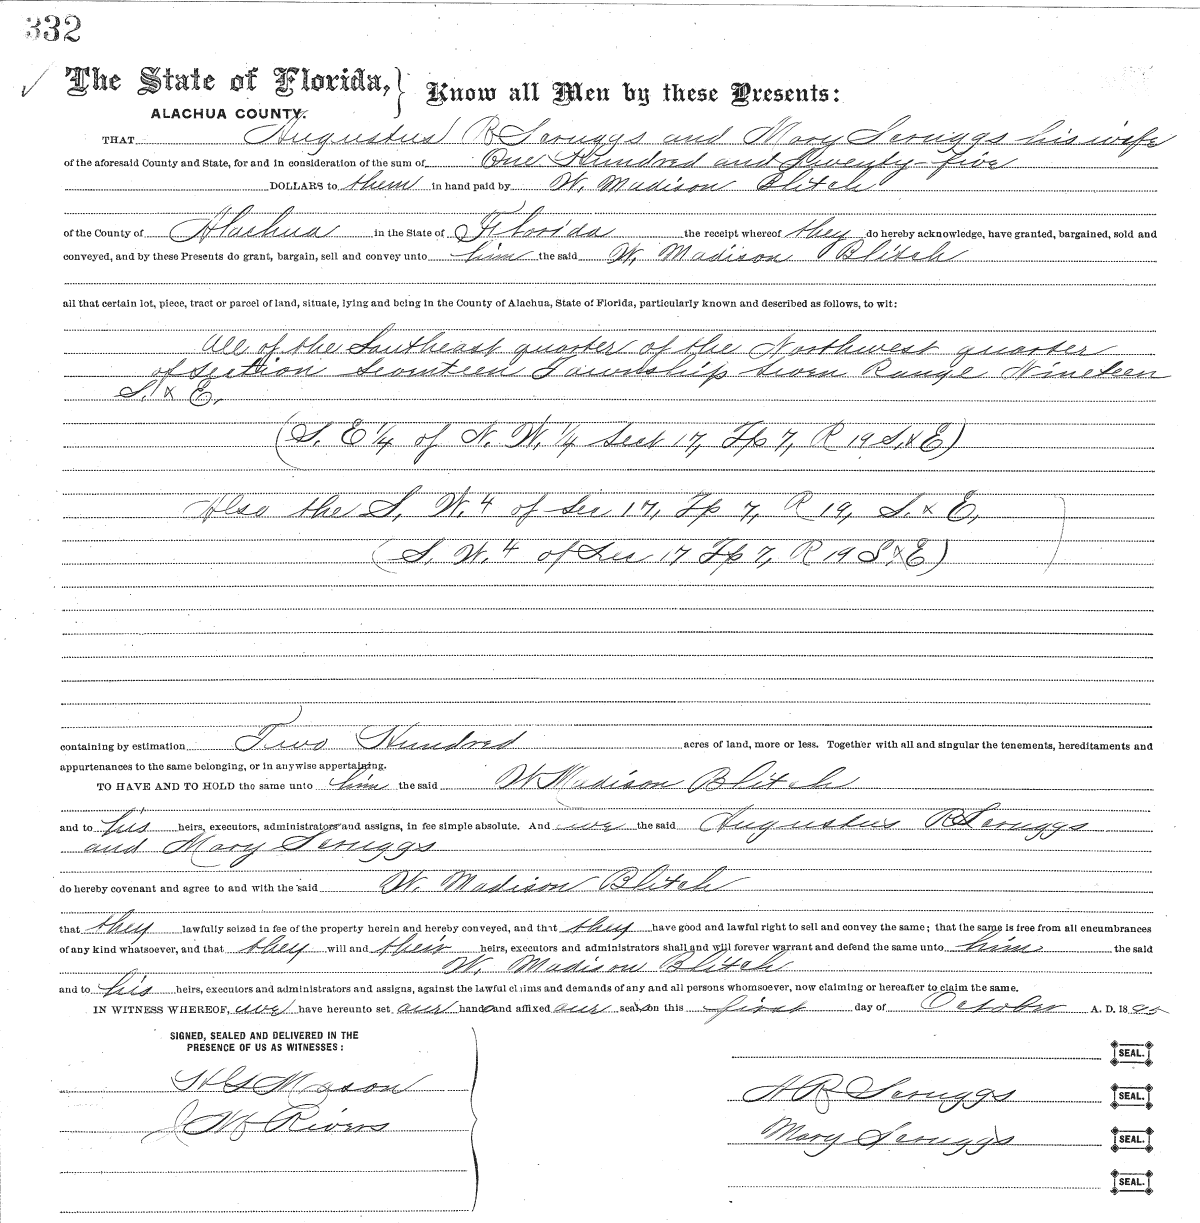 332
The State of Florida, } Know all Men by these Presents:
ALACHUA COUNTY.
THAT Augustus R Scruggs and Mary Scruggs his wife
of the aforesaid County and State, for and in consideration of the sum of One Hundred and Seventy-five
DOLLARS to them in hand paid by W. Madison Blitch
of the County of Alachua in the State of Florida the receipt whereof they do hereby acknowledge, have granted, bargained, sold and
conveyed, and by these Presents do grant, bargain, sell and convey unto him the said W. Madison Blitch
all that certain lot, piece, tract or parcel of land, situate, lying and being in the County of Alachua, State of Florida, particularly known and described as follows, to wit:
All of the Southeast quarter of the Northwest quarter
of Section Seventeen Township Seven Range Nineteen
S. & E.
(S. E 1/4 of N. W. 1/4 Sect 17, Tp 7, R 19 S. & E)
Also the S. W. 4 of Sec 17, Tp 7, R 19, S. & E.
(S. W. 4 of Sec 17 Tp 7, R 19 S. & E)
containing by estimation Two Hundred acres of land, more or less. Together with all and singular the tenements, hereditaments and
appurtenances to the same belonging, or in anywise appertaining.
TO HAVE AND TO HOLD the same unto him the said W Madison Blitch
and to his heirs, executors, administrators and assigns, in fee simple absolute. And we the said Augustus R Scruggs
and Mary Scruggs
do hereby covenant and agree to and with the said W. Madison Blitch
that they lawfully seized in fee of the property herein and hereby conveyed, and that they have good and lawful right to sell and convey the same; that the same is free from all encumbrances
of any kind whatsoever, and that they will and their heirs, executors and administrators shall and will forever warrant and defend the same unto him the said
W. Madison Blitch
and to his heirs, executors and administrators and assigns, against the lawful claims and demands of any and all persons whomsoever, now claiming or hereafter to claim the same.
IN WITNESS WHEREOF, we have hereunto set our hands and affixed our seals on this first day of October A. D. 1895
SIGNED, SEALED AND DELIVERED IN THE
PRESENCE OF US AS WITNESSES:
SEAL.
H G Mason
A R Scruggs SEAL.
Rivers
Mary Scruggs SEAL.
SEAL.